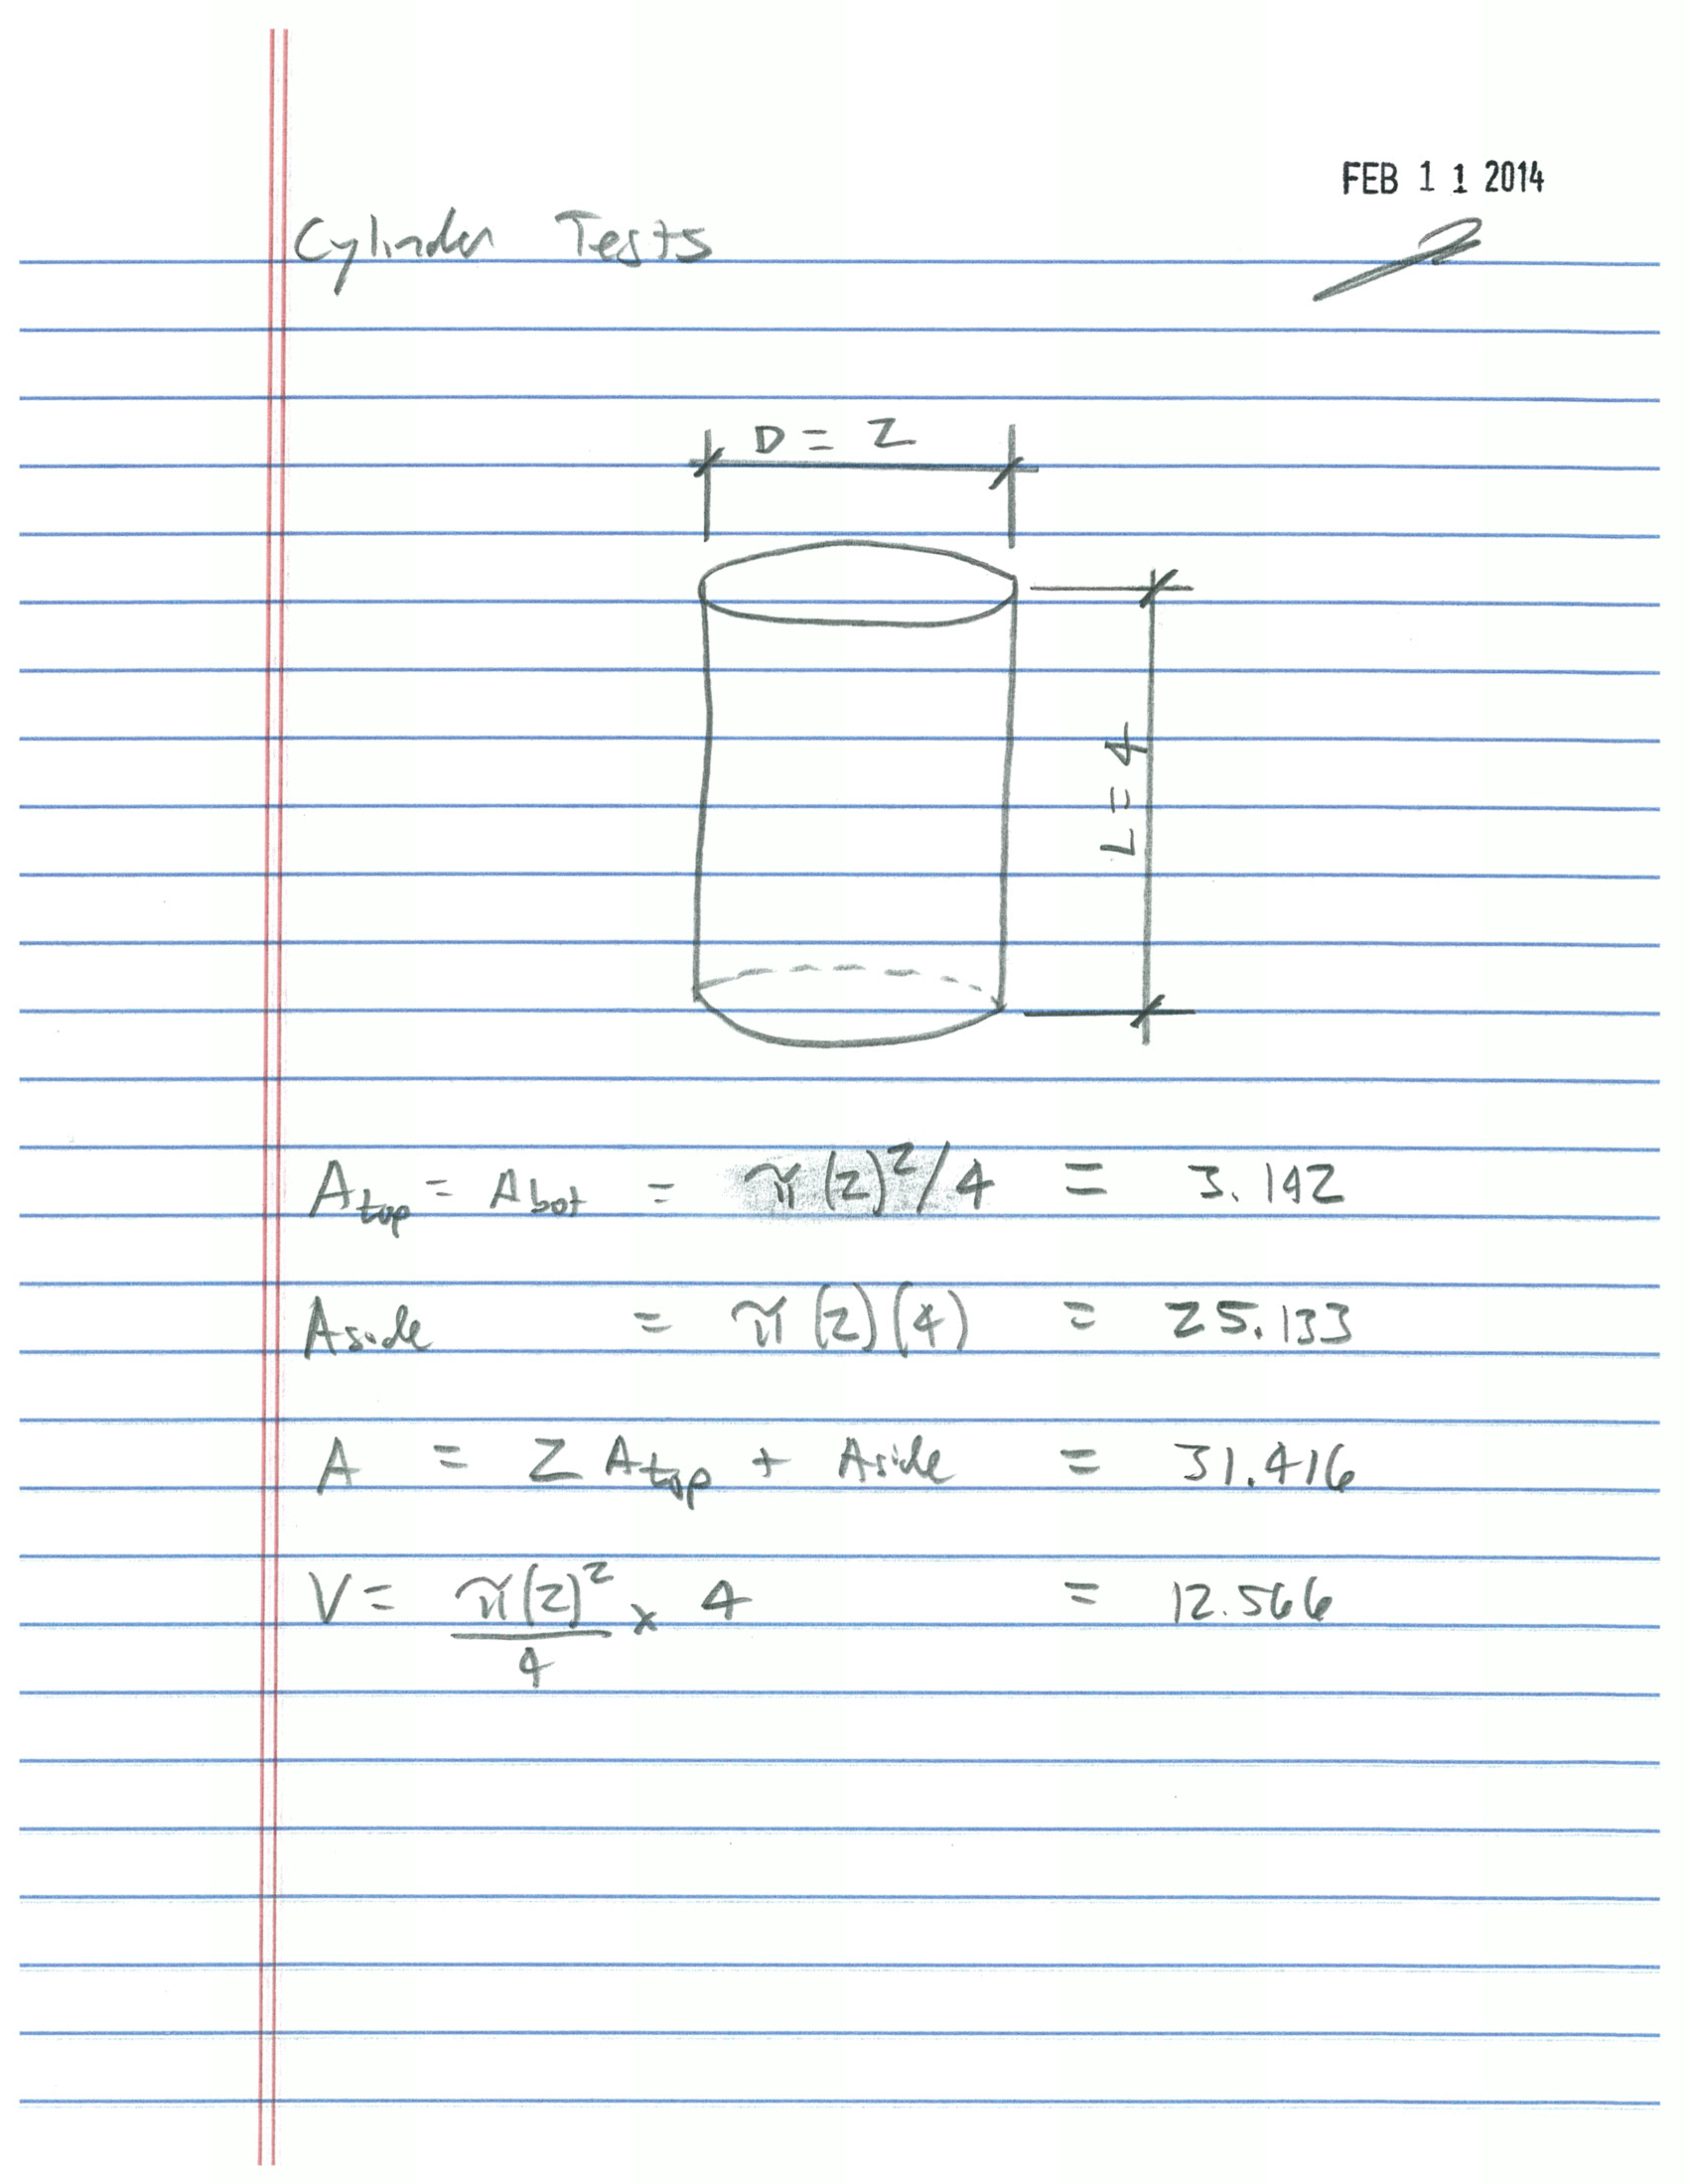 FEB 11 2014
Cylinder Tests
D = 2
L = 4
A top = A bot = π(2)²/4 = 3.142
A side = π(2)(4) = 25.133
A = 2 A top + A side = 31.416
V = π(2)²/4 x 4 = 12.566